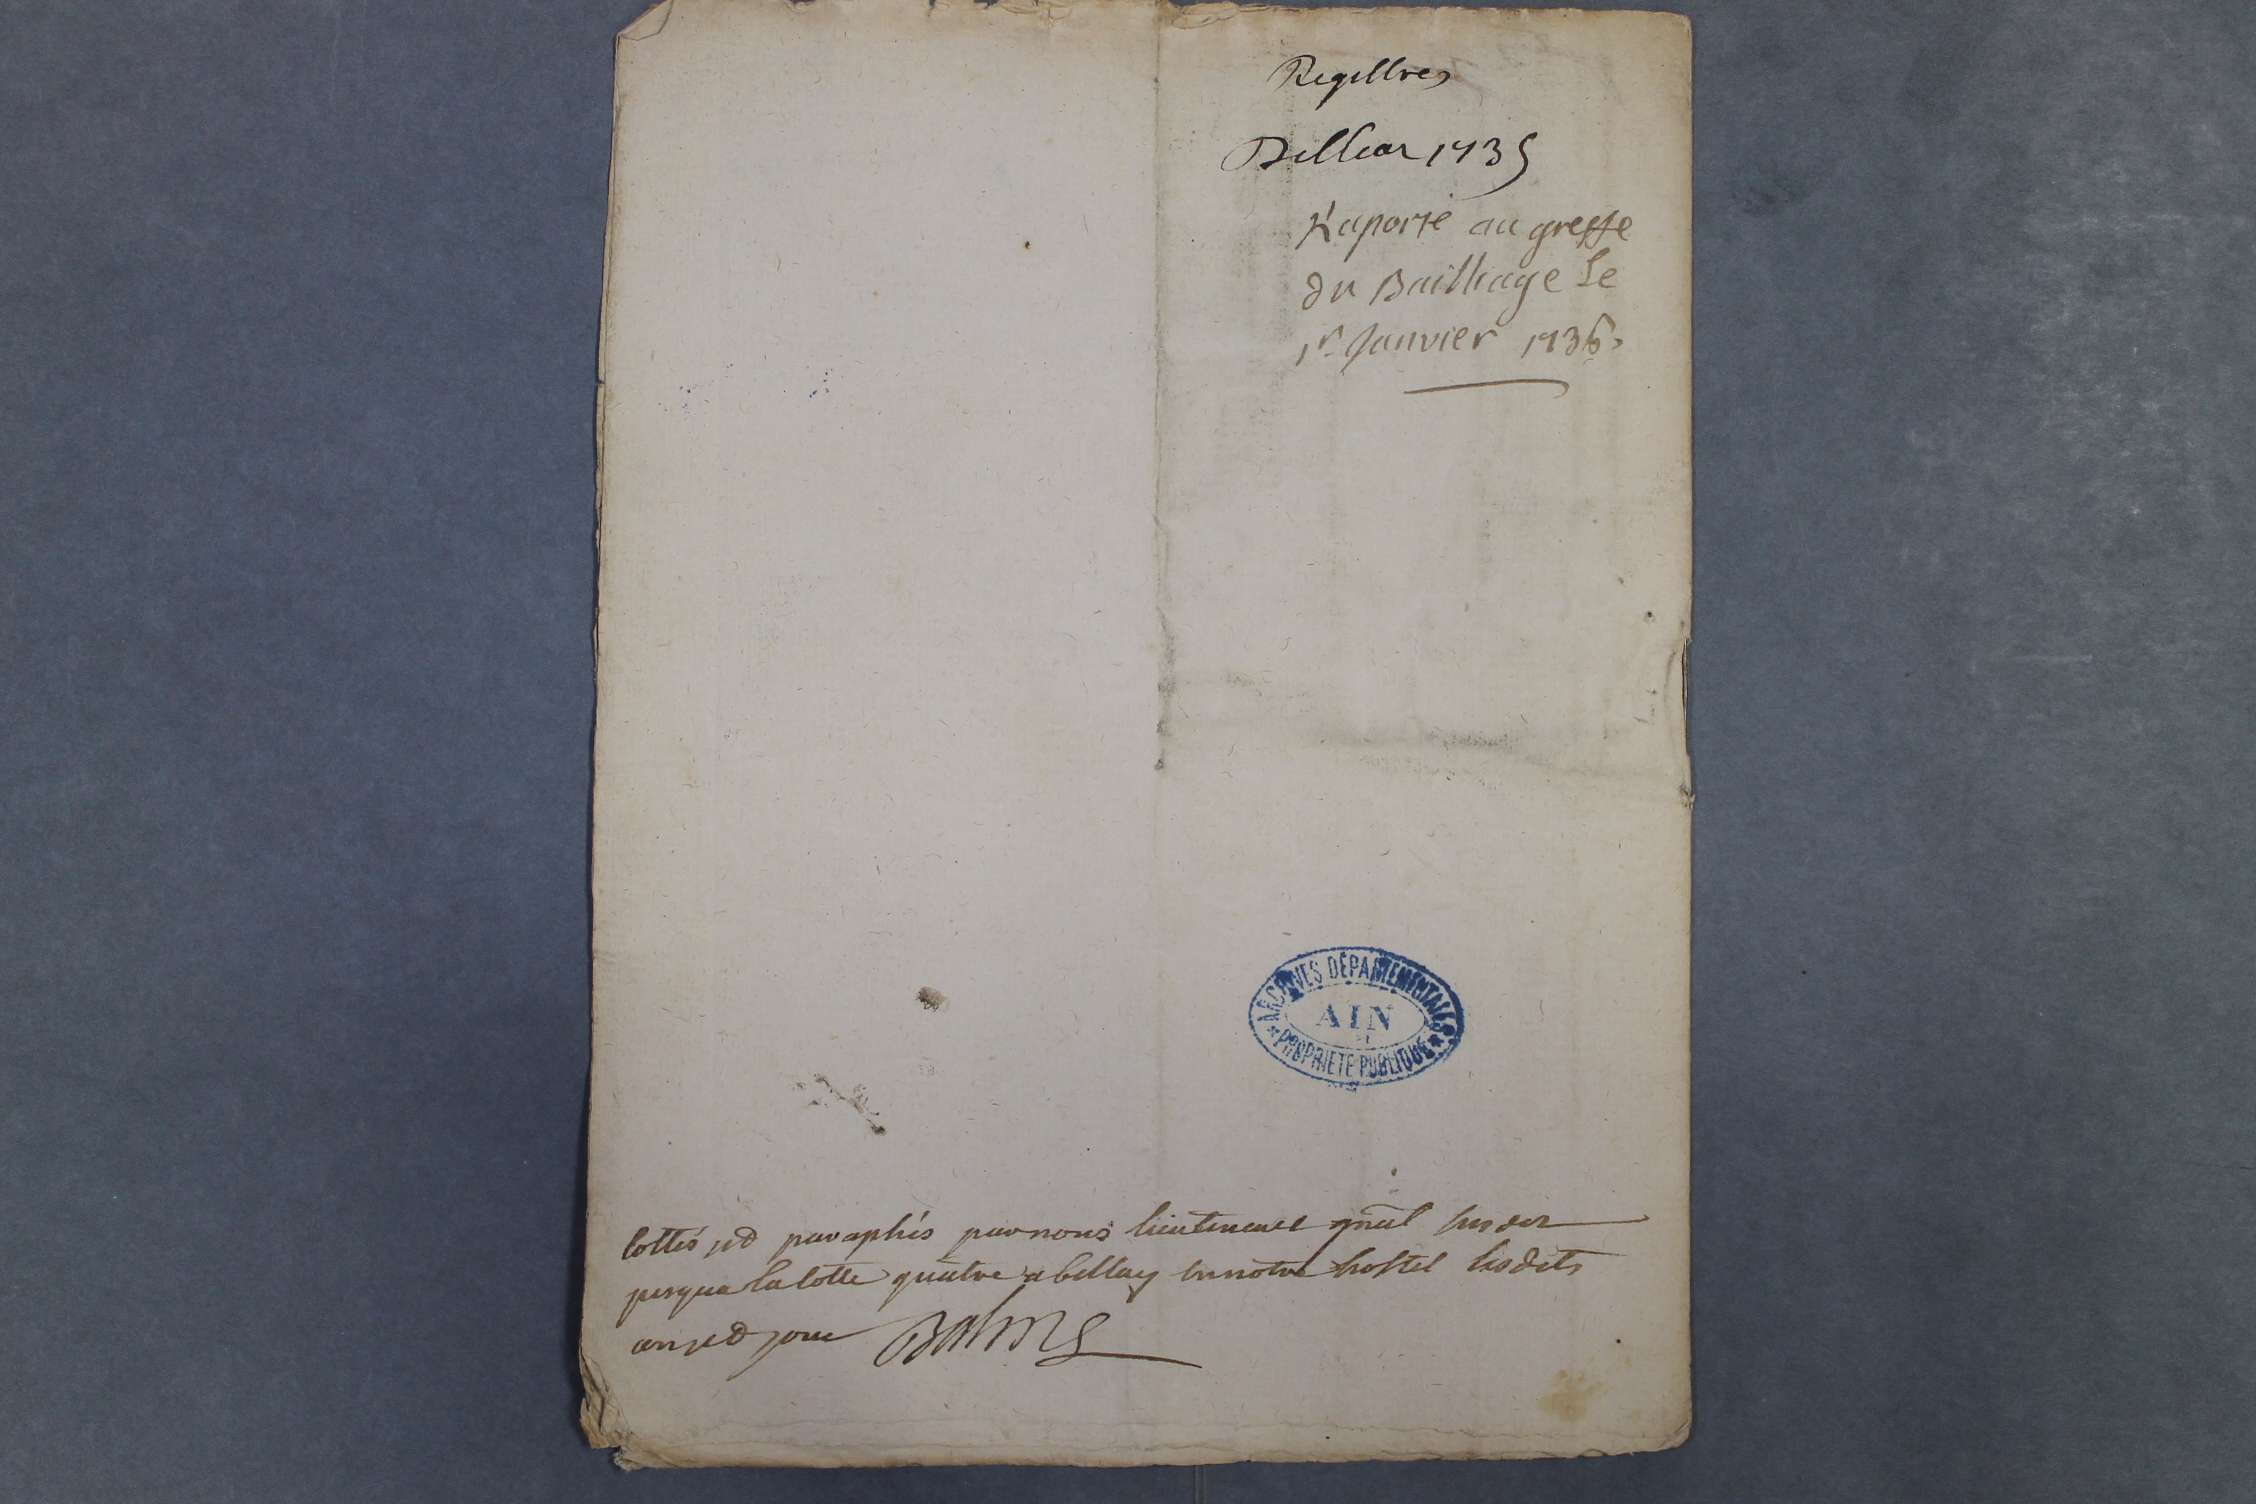 Registres
Billiar 1735
Raporté au greffe
du Bailliage le
1r Janvier 1736.
ARCHIVES DÉPARTEMENTALES
AIN
PROPRIETE PUBLIQUE
cottés et paraphés par nous lieutenant gnal susdit
jusqua la cotte quatre a bellay en notre hostel lesdits
an et jour Balme